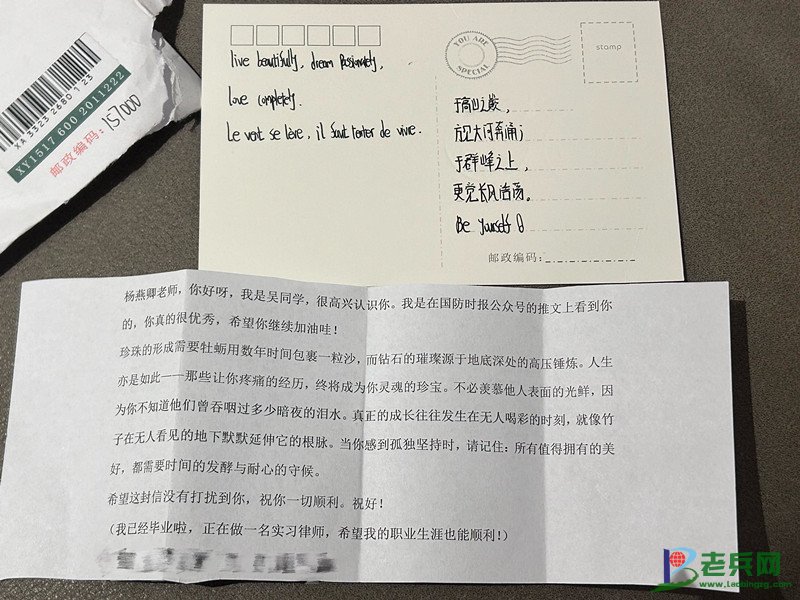 XA 3323 2680 1 23
XY1517 600 2011222
邮政编码：157000
YOU ARE SPECIAL
stamp
live beautifully, dream passionately,
love completely.
Le vent se lève, il faut tenter de vivre.
于高山之巅，
方见大河奔涌；
于群峰之上，
更觉长风浩荡。
Be yourself
邮政编码：
杨燕卿老师，你好呀，我是吴同学，很高兴认识你。我是在国防时报公众号的推文上看到你
的，你真的很优秀，希望你继续加油哇！
珍珠的形成需要牡蛎用数年时间包裹一粒沙，而钻石的璀璨源于地底深处的高压锤炼。人生
亦是如此——那些让你疼痛的经历，终将成为你灵魂的珍宝。不必羡慕他人表面的光鲜，因
为你不知道他们曾吞咽过多少暗夜的泪水。真正的成长往往发生在无人喝彩的时刻，就像竹
子在无人看见的地下默默延伸它的根脉。当你感到孤独坚持时，请记住：所有值得拥有的美
好，都需要时间的发酵与耐心的守候。
希望这封信没有打扰到你，祝你一切顺利。祝好！
（我已经毕业啦，正在做一名实习律师，希望我的职业生涯也能顺利！）
老兵网
www.laobingzg.com